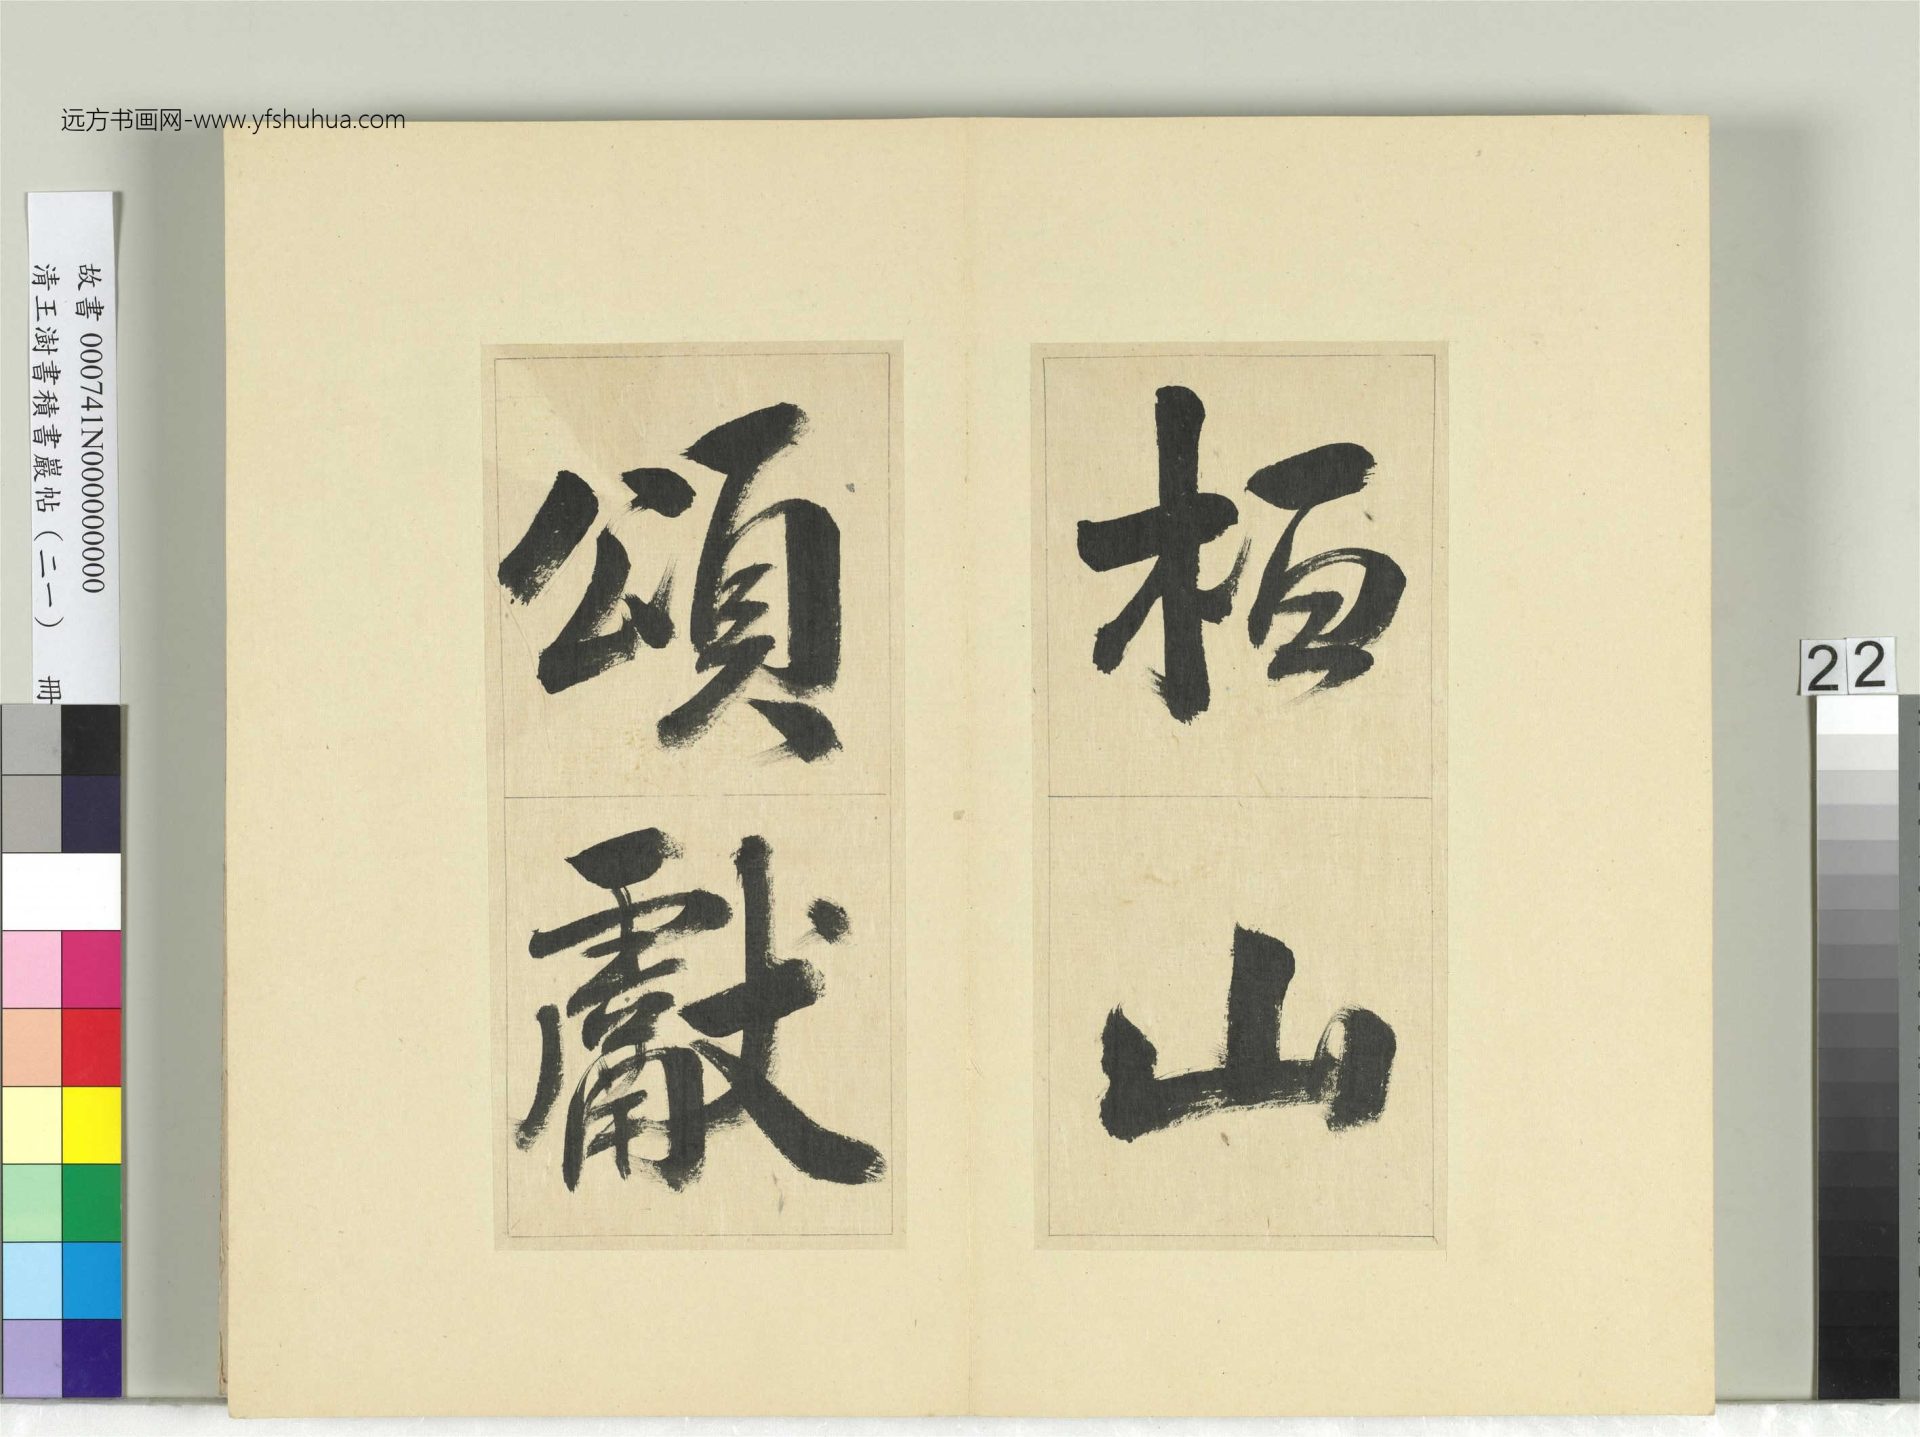 远方书画网-www.yfshuhua.com
桓山
頌獻
故書 000741N000000000
清王澍書積書巖帖（二一） 冊
22